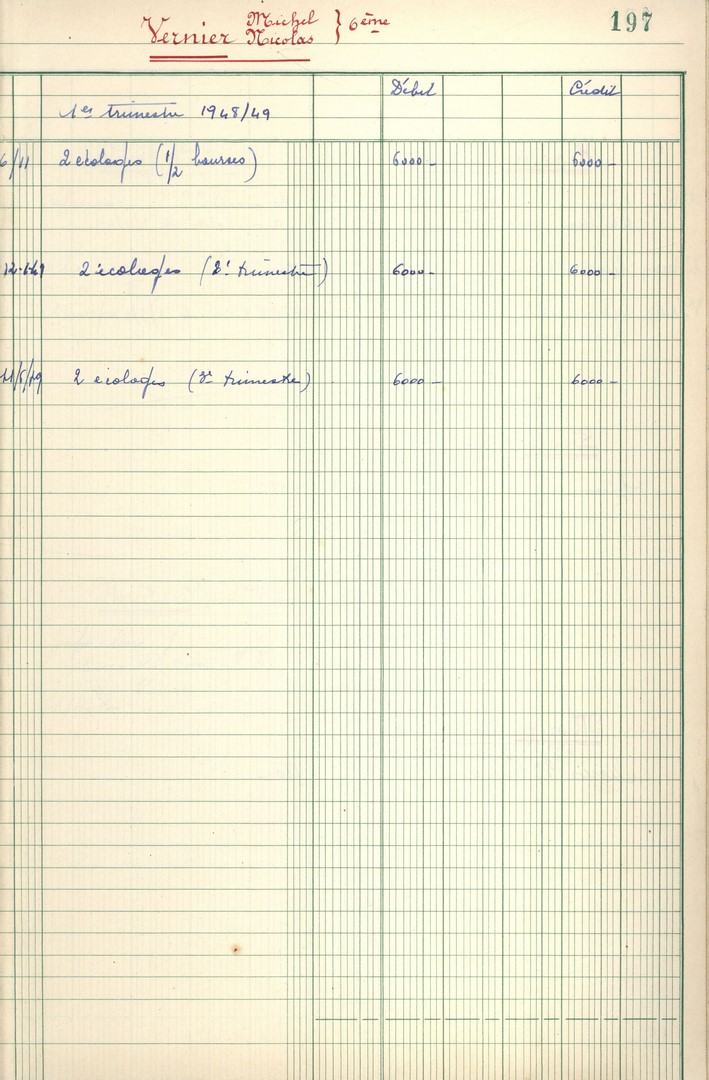 Vernier Michel } 6ème 197
Nicolas
Débit Crédit
1er trimestre 1948/49
6/11 2 écolages (1/2 bourses) 6000 - 6000 -
2 écolages (2e trimestre) 6000 - 6000 -
2 écolages (3e trimestre) 6000 - 6000 -